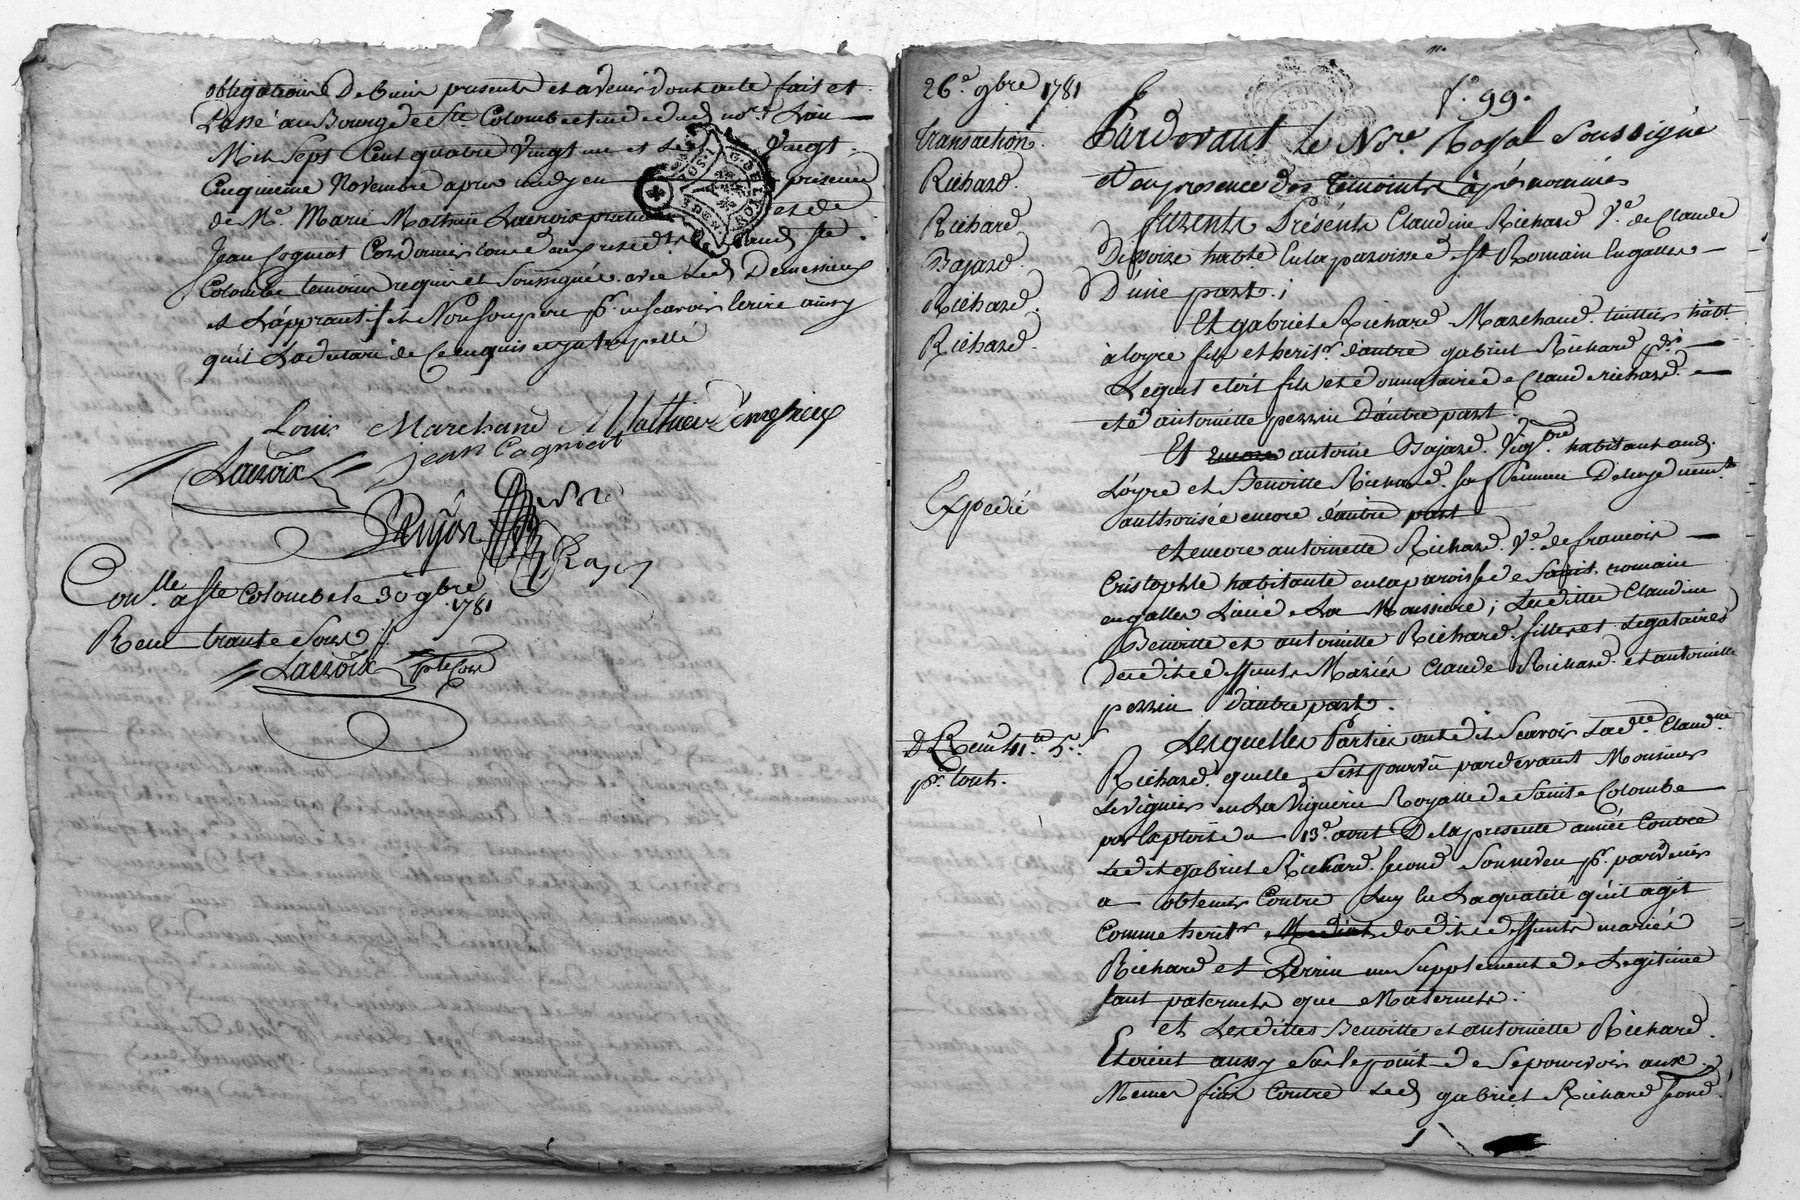 obligation De biens presents et avenir dont acte fait et
Passé au Bourg de Ste Colombe etude dud nore L'an
Mil Sept Cent quatre Vingt un et Le Vingt
Cinquieme Novembre apres midy en presence
de Me Marie Mathieu Lacroix praticien et de
Jean Cogniat Cordonnier aud Ste
Colombe temoins requis et Soussignés avec Led Demessieux
et L'apprantif et Non pr ne scavoir Ecrire ainsy
qu'il La declaré de Ce enquis et interpellé
Louis Marchand Mathieu Demessieux
Lacroix Jean Cogniat
Conlle a Ste Colombe le 30 9bre
1781
Receu trante Sous
Lacroix
26e 9bre 1781
Transaction.
Richard.
Richard
Bajard
Richard.
Richard.
Expedié
Receu 41 tt 5 s
pr. tout.
fo. 99.
Pardevant le Nore Royal Soussigné
et en presence des temoints après nommés
furents Présents Claudine Richard Ve de Claude
habte En la paroisse de St Romain En galles
D'une part;
Et gabriel Richard Marchand tuillier habt
à loyre fils et heritr d'autre gabriel Richard
Lequel etoit fils et donnataire de Claude richard
et d'antoinette perrin D'autre part.
Et antoine Bajard Vigron habitant aud
Loyre et Benoitte Richard sa femme De luy deument
authorisée encore d'autre part
et encore antoinette Richard Ve de francois
Cristophle habitante en la paroisse de Saint romain
en galles Lieu de La Moussiere; Lesdittes Claudine
Benoitte et antoinette Richard filles et Legataires
desdits deffunts Mariés Claude Richard et antoinette
perrin D'autre part.
Lesquelles Parties ont dit Scavoir Lade. Claudne
Richard qu'elle s'est pourvü pardevant Monsieur
Le viguier en La Viguerie Royalle de Sainte Colombe
par Exploit du 13e avril De la presente année Contre
Ledit gabriel Richard second Son neveu pr. parvenir
a obtenir Contre Luy En La qualité qu'il agit
Comme heritr desdits deffunts mariés
Richard et Perrin un Supplement de Legitime
tant paternels que Maternels.
et Lesdittes Benoitte et antoinette Richard
Etoient aussy Sur le point de Se pourvoir aux
Memes fins Contre Led gabriel Richard second